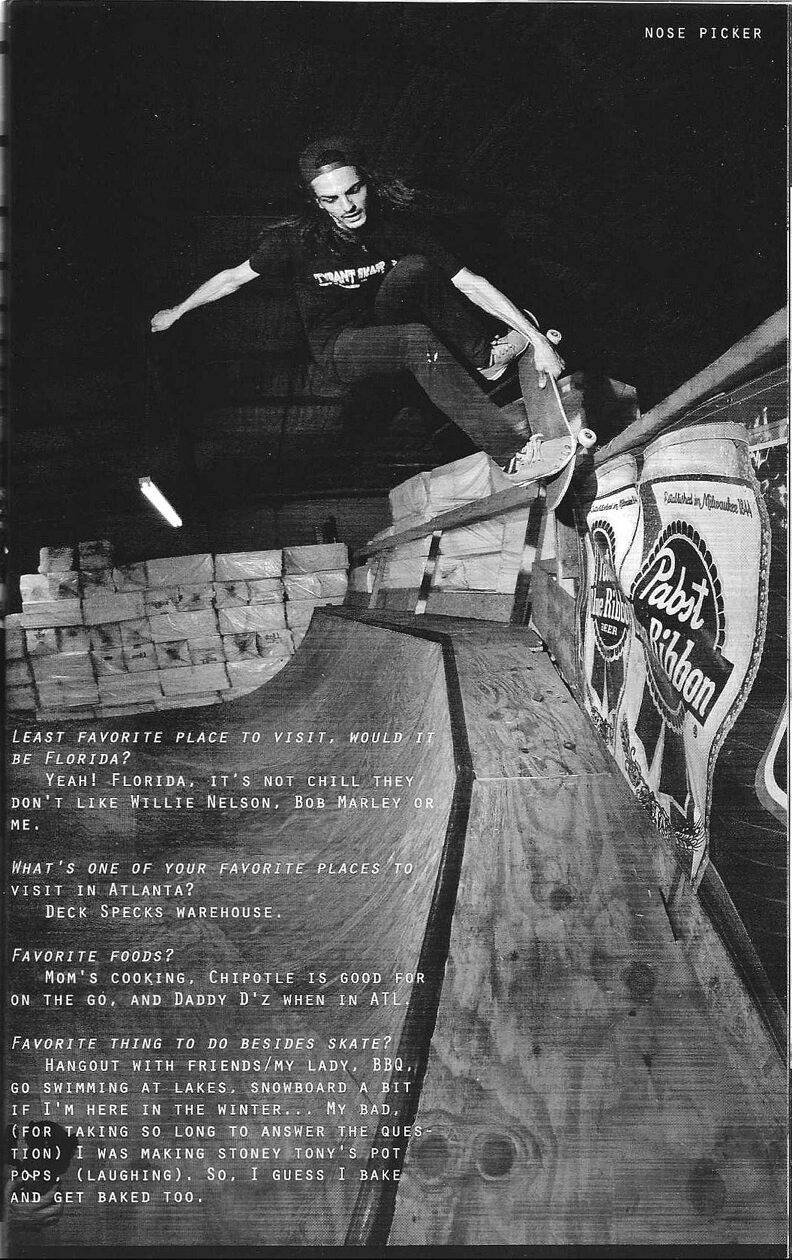 NOSE PICKER
TYRANT SKATE
Established in Milwaukee 1844
Pabst
Ribbon
ue Ribbon
BEER
LEAST FAVORITE PLACE TO VISIT, WOULD IT
BE FLORIDA?
YEAH! FLORIDA, IT'S NOT CHILL THEY
DON'T LIKE WILLIE NELSON, BOB MARLEY OR
ME.
WHAT'S ONE OF YOUR FAVORITE PLACES TO
VISIT IN ATLANTA?
DECK SPECKS WAREHOUSE.
FAVORITE FOODS?
MOM'S COOKING, CHIPOTLE IS GOOD FOR
ON THE GO, AND DADDY D'Z WHEN IN ATL.
FAVORITE THING TO DO BESIDES SKATE?
HANGOUT WITH FRIENDS/MY LADY, BBQ,
GO SWIMMING AT LAKES, SNOWBOARD A BIT
IF I'M HERE IN THE WINTER... MY BAD,
(FOR TAKING SO LONG TO ANSWER THE QUES-
TION) I WAS MAKING STONEY TONY'S POT
POPS, (LAUGHING). SO, I GUESS I BAKE
AND GET BAKED TOO.